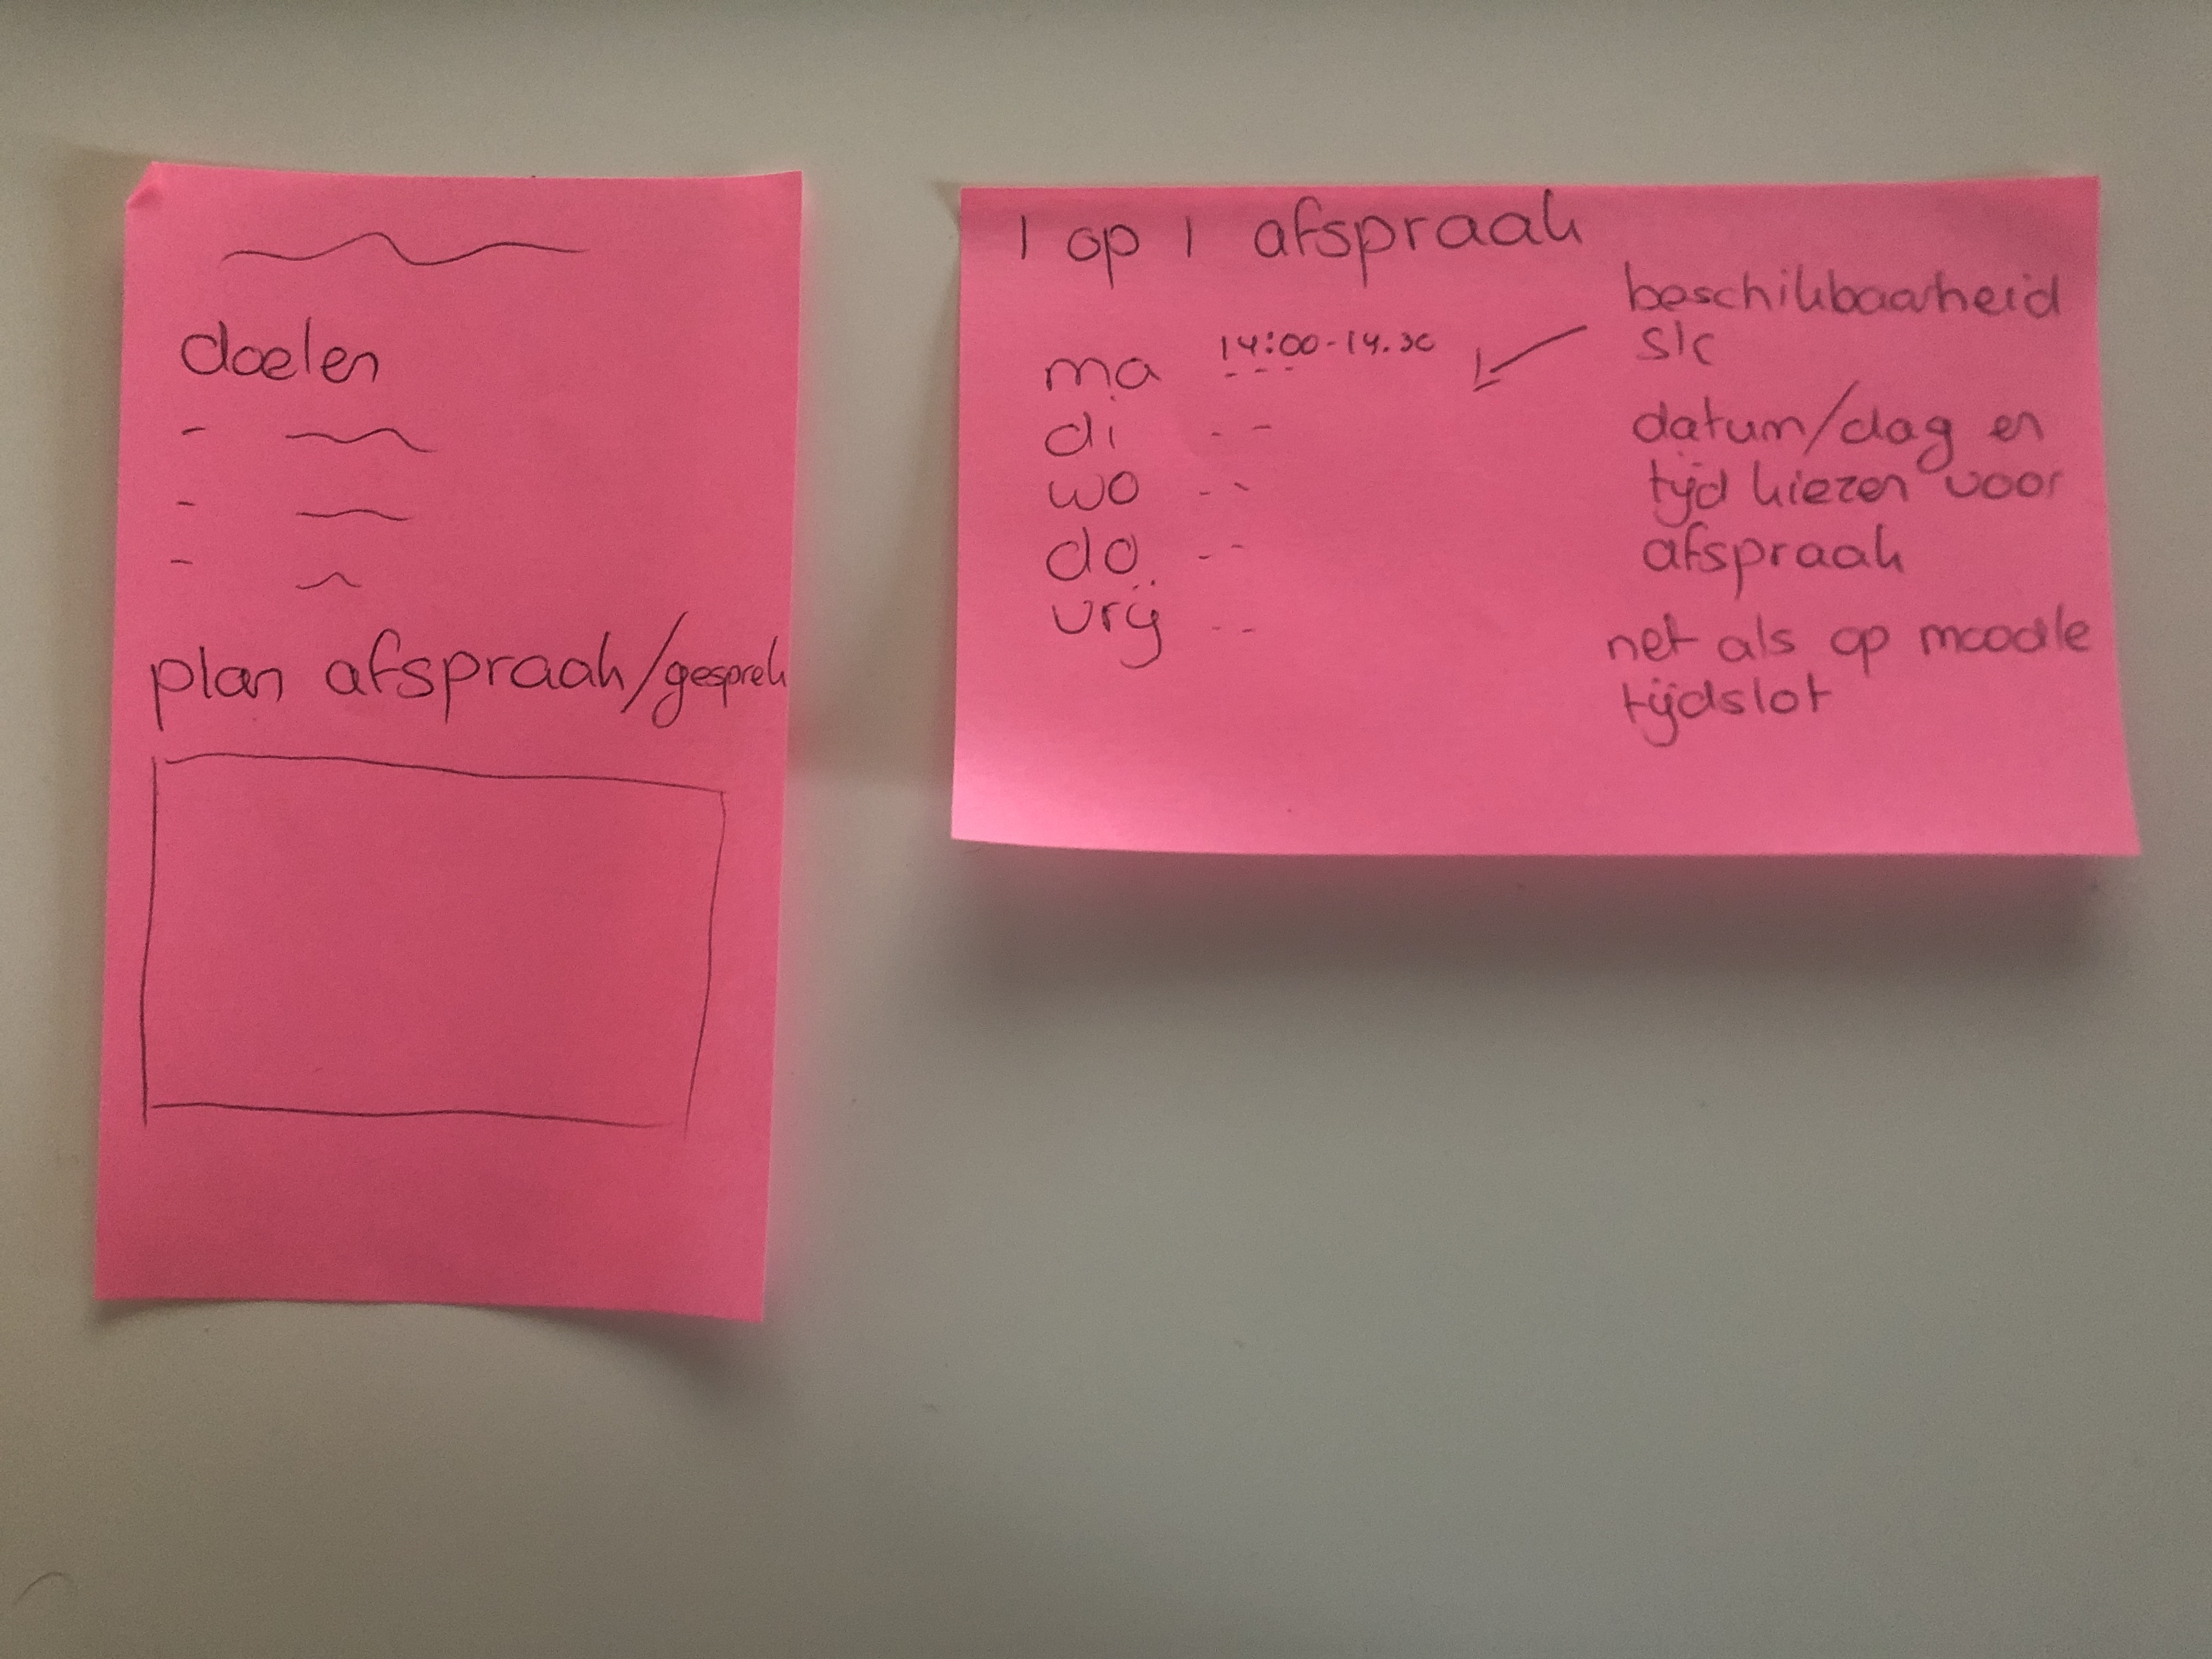 doelen
-
-
-
plan afspraak/gesprek
1 op 1 afspraak
ma 14:00-14.30
di - -
wo - -
do - -
vrij - -
beschikbaarheid
slc
datum/dag en
tijd kiezen voor
afspraak
net als op moodle
tijdslot